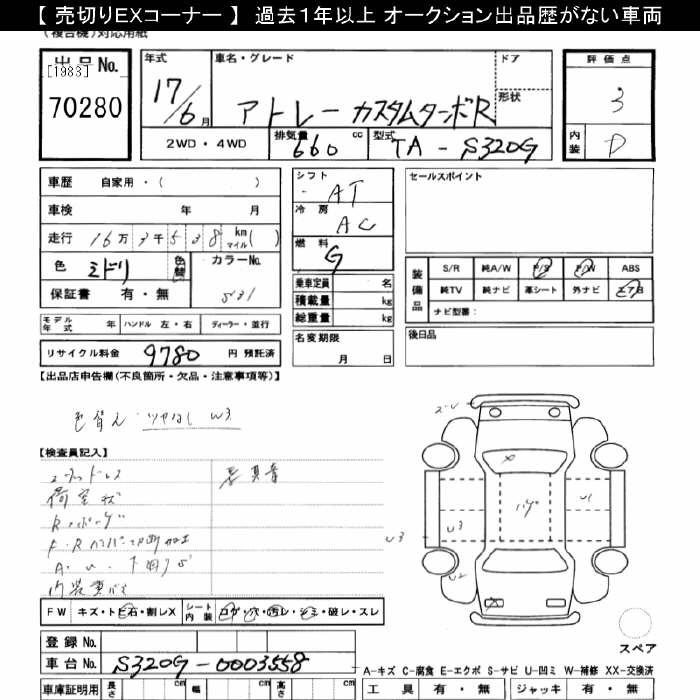 【 売切りEXコーナー 】 過去1年以上 オークション出品歴がない車両
(複合機)対応用紙
出品No.
[1983]
70280
年式
17/6月
車名・グレード
アトレー カスタムターボR
ドア
形状
2WD・4WD
排気量 660 cc
型式 TA-S320G
評価点
3
内装 D
車歴 自家用・( )
車検 年 月
走行 16万3千538 km マイル( )
色 ミドリ 色替
カラーNo.
保証書 有・無
シフト AT
冷房 AC
燃料 G
乗車定員 名
積載量 kg
総重量 kg
セールスポイント
装備品
S/R 純A/W P/S P/W ABS
純TV 純ナビ 革シート 外ナビ エアB
ナビ型番:
モデル年式 年 ハンドル 左・右 ディーラー・並行
名変期限 月 日
後日品
リサイクル料金 9780 円 預託済
【出品店申告欄(不良箇所・欠品・注意事項等)】
色替え ツヤなし W3
【検査員記入】
荷室状
内装
FW キズ・トビ石・割レX シート内装 コゲ・穴・汚レ・シミ・破レ・スレ
U1
U3
U3
U2
登録No.
車台No. S320G-0003558
スペア
A-キズ C-腐食 E-エクボ S-サビ U-凹ミ W-補修 XX-交換済
車庫証明用 長さ cm 幅 cm 高さ cm
工具 有・無 ジャッキ 有・無